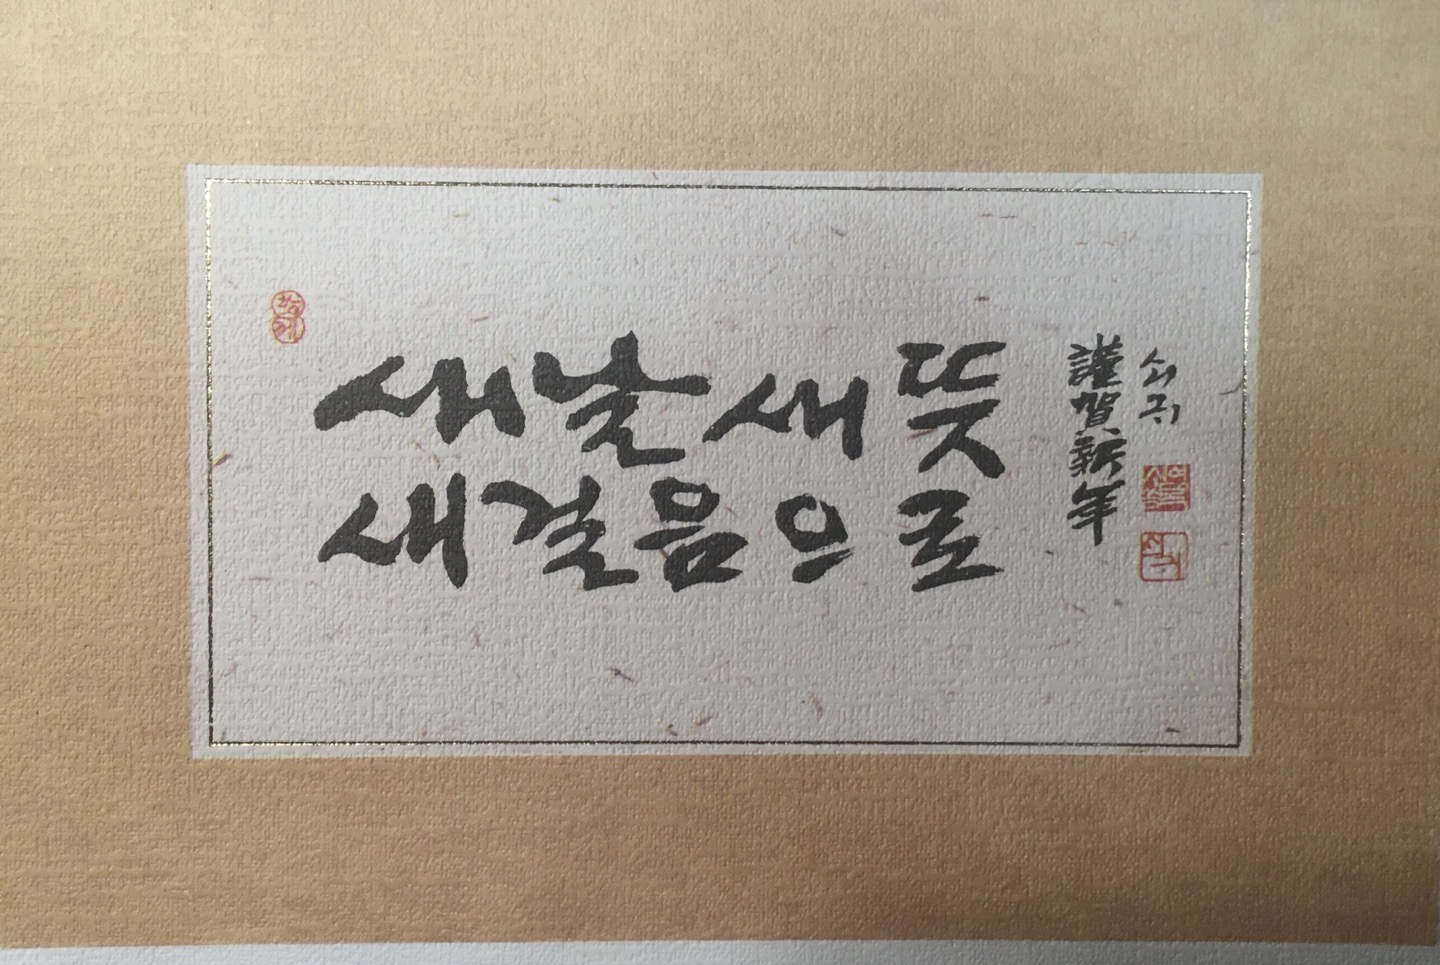 새날 새 뜻
새 걸음으로
謹賀新年
쇠귀